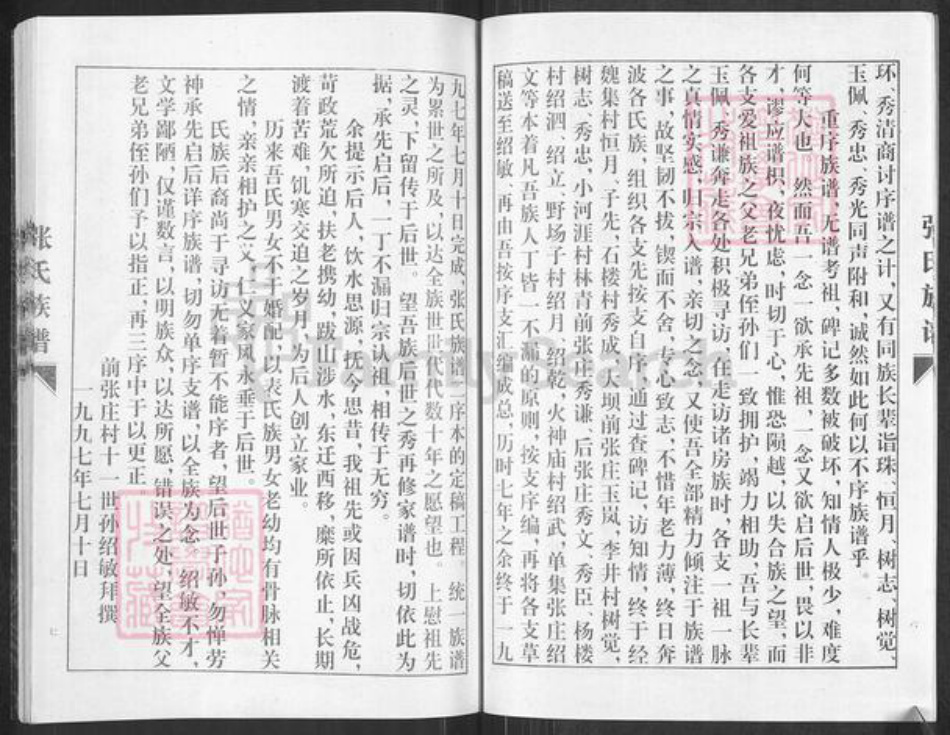 环、秀清商讨序谱之计,又有同族长辈诣珠、恒月、树志、树觉、
玉佩、秀忠、秀光同声附和,诚然如此何以不序族谱乎。
重序族谱,无谱考祖,碑记多数被破坏,知情人极少,难度
何等大也,然而吾一念一欲承先祖,一念又欲启后世,畏以非
才,谬应谱炽,夜忧虑,时切于心,惟恐陨越,以失合族之望,而
各支爱祖族之父老兄弟侄孙们一致拥护,竭力相助,吾与长辈
玉佩、秀谦奔走各处积极寻访,在走访诸房族时,各支一祖一脉
之真情实感,归宗入谱,亲切之念,又使吾全部精力倾注于族谱
之事,故坚韧不拔,锲而不舍,专心致志,不惜年老力薄,终日奔
波各氏族,组织各支先按支自序,通过查碑记,访知情,终于经
魏集村村恒月、子先,石楼村秀成,大坝前张庄玉岚,李井村树觉、
树志、秀忠,小河涯村林青,前张庄秀谦、后张庄秀文、秀臣、杨楼
村绍泗、绍立,野场子村绍月、绍乾,火神庙村绍武,单集张庄绍
文等本着凡吾族人丁皆一不漏的原则,按支序编,再将各支草
稿送至绍敏、再由吾按序支汇编成总,历时七年之余终于一九
九七年七月十日完成,张氏族谱二序本的定稿工程。统一族谱
为累世之所及,以达全族世世代代数十年之愿望也。上慰祖先
之灵,下留传于后世。望吾族后世之秀再修家谱时,切依此为
据,承先启后,一丁不漏归宗认祖,相传于无穷。
余提示后人,饮水思源,抚今思昔,我祖先或因兵凶战危,
苛政荒欠所迫,扶老携幼,跋山涉水,东迁西移,糜所依止,长期
渡着苦难、饥寒交迫之岁月,为后人创立家业。
历来吾氏男女不于婚配,以表氏族男女老幼均有骨脉相关
之情,亲亲相护之义,仁义家风永垂于后世。
氏族后裔尚于寻访无着暂不能序者,望后世子孙,勿惮劳
神承先启后详序族谱,切勿单序支谱,以全族为念,绍敏不才,
文学鄙陋,仅谨数言,以明族众,以达所愿,错误之处,望全族父
老兄弟侄孙们予以指正,再三序中于以更正。
前张庄村十一世孙绍敏拜撰
一九九七年七月十日
张氏族谱
FamilySearch